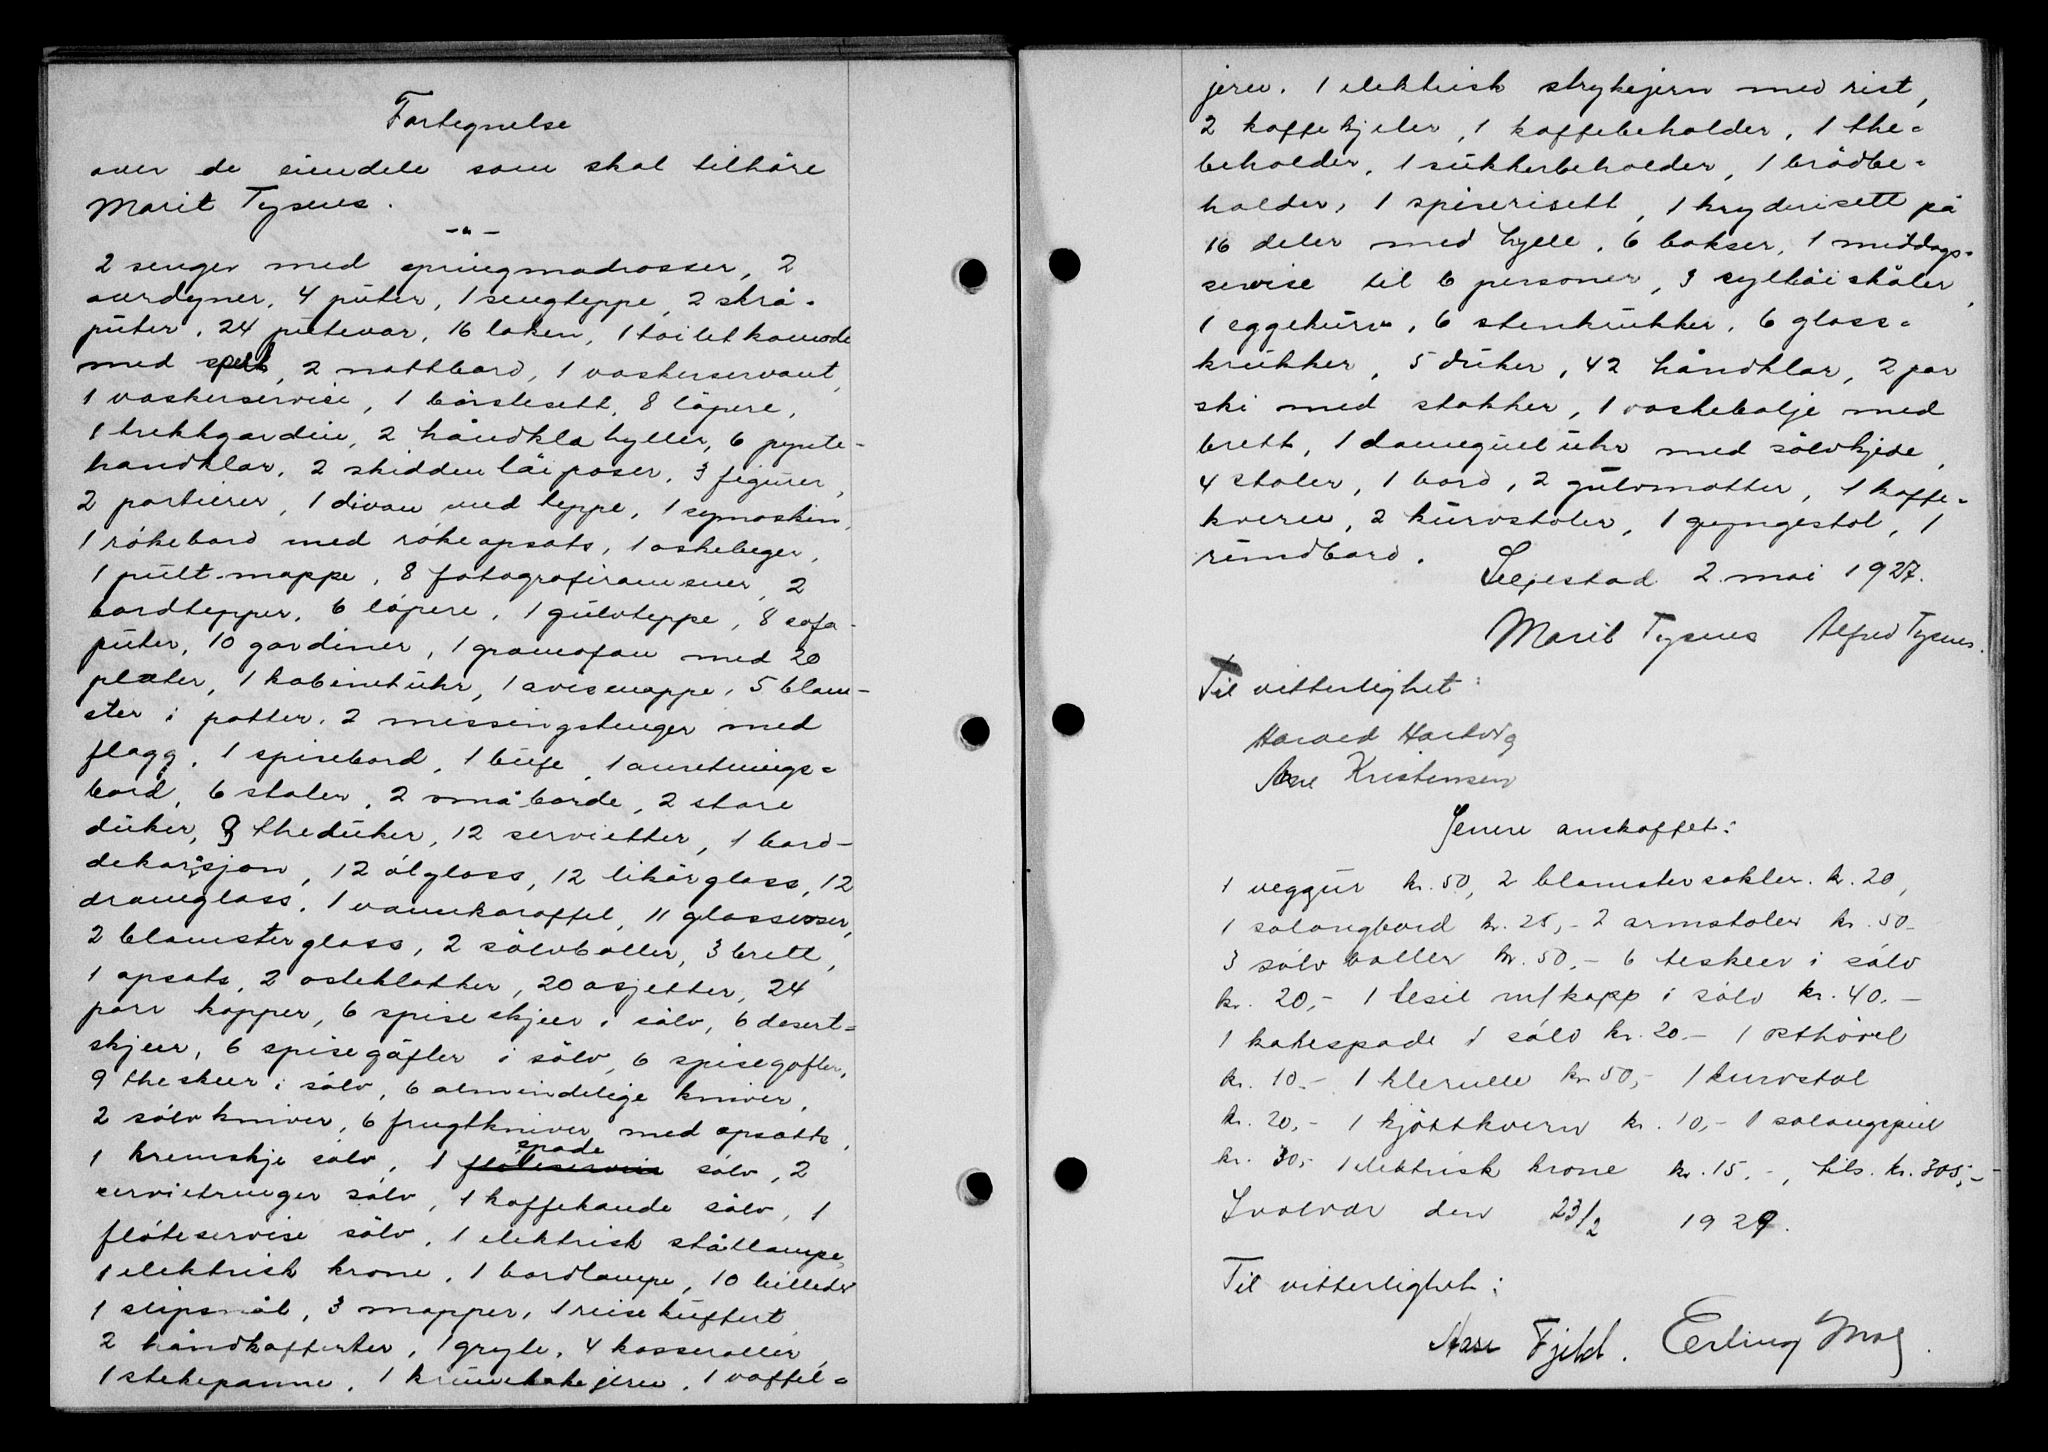 Fortegnelse
over de eiendele som skal tilhøre
Marit Tysnes.
-"-
2 senger med springmadrasser, 2
overdyner, 4 puter, 1 sengteppe, 2 skrå-
puter, 24 putevar, 16 laken, 1 toiletkomode
med speil, 2 nattbord, 1 vaskerservant,
1 vaskerservise, 1 børstesett, 8 løpere,
1 trekkgardin, 2 håndkla hyller, 6 pynte-
handklær, 2 skiddentøiposer, 3 figurer,
2 portierer, 1 divan med teppe, 1 symaskin,
1 røkebord med røkeopsats, 1 askebeger,
1 pult-mappe, 8 fotografirammer, 2
bordtepper, 6 løpere, 1 gulvteppe, 8 sofa-
puter, 10 gardiner, 1 gramofon med 20
plater, 1 kabinetuhr, 1 avismappe, 5 blom-
ster i potter, 2 messingstenger med
flagg, 1 spisebord, 1 bufe, 1 anretnings-
bord, 6 stoler, 2 små borde, 2 store
duker, 9 theduker, 12 servietter, 1 bord-
dekorasjon, 12 ølglass, 12 likørglass, 12
dramglass, 1 vannkaraffel, 11 glassvaser,
2 blomsterglass, 2 sølvboller, 3 brett,
1 opsats, 2 osteklokker, 20 asjetter, 24
parr kopper, 6 spiseskjeer i sølv, 6 desert-
skjeer, 6 spisegafler i sølv, 6 spisegafler,
9 theskeer i sølv, 6 almindelige kniver,
2 sølvkniver, 6 frugtkniver med opsatts,
1 kremskje sølv, 1 spade sølv, 2
servietringer sølv, 1 kaffekande sølv, 1
fløteservise sølv, 1 elektrisk ståtlampe,
1 elektrisk krone, 1 bordlampe, 10 billeder
1 slipsnål, 3 mapper, 1 reisekuffert,
2 håndkofferter, 1 gryte, 4 kasseroller,
1 stekepanne, 1 krumkakejern, 1 vaffel-
jern. 1 elektrisk strykejern med rist,
2 kaffekjeler, 1 kaffebeholder, 1 the-
beholder, 1 sukkerbeholder, 1 brødbe-
holder, 1 spiserisett, 1 kryderisett på
16 deler med hylle, 6 bokser, 1 middags-
servise til 6 personer, 3 syltøiskåler,
1 eggekurv, 6 stenkrukker, 6 glass-
krukker, 5 duker, 42 håndklær, 2 par
ski med stokker, 1 vaskebalje med
brett, 1 damegulluhr med sølvkjede,
4 stoler, 1 bord, 2 gulvmatter, 1 kaffe-
kvern, 2 kurvstoler, 1 gyngestol, 1
rundbord.
Seljestad 2. mai 1927.
Marit Tysnes Alfred Tysnes.
Til vitterlighet:
Harald Hartvig
Kristensen
Senere anskaffet:
1 veggur kr. 50, 2 blomstersokler. kr. 20,
1 salongbord kr. 25,- 2 armstoler kr. 50-
3 sølv boller kr. 50.- 6 teskeer i sølv
kr. 20,- 1 tesil m/kopp i sølv kr. 40.-
1 kakespade i sølv kr. 20.- 1 osthøvel
kr. 10.- 1 klerulle kr 50,- 1 kurvstol
kr. 20,- 1 kjøttkvern kr. 10,- 1 salongspeil
kr. 30,- 1 elektrisk krone kr. 15.-, tils. kr. 305,-
Svolvær den 23/2 1929.
Til vitterlighet:
Aase Fjeld. Erling Moe.